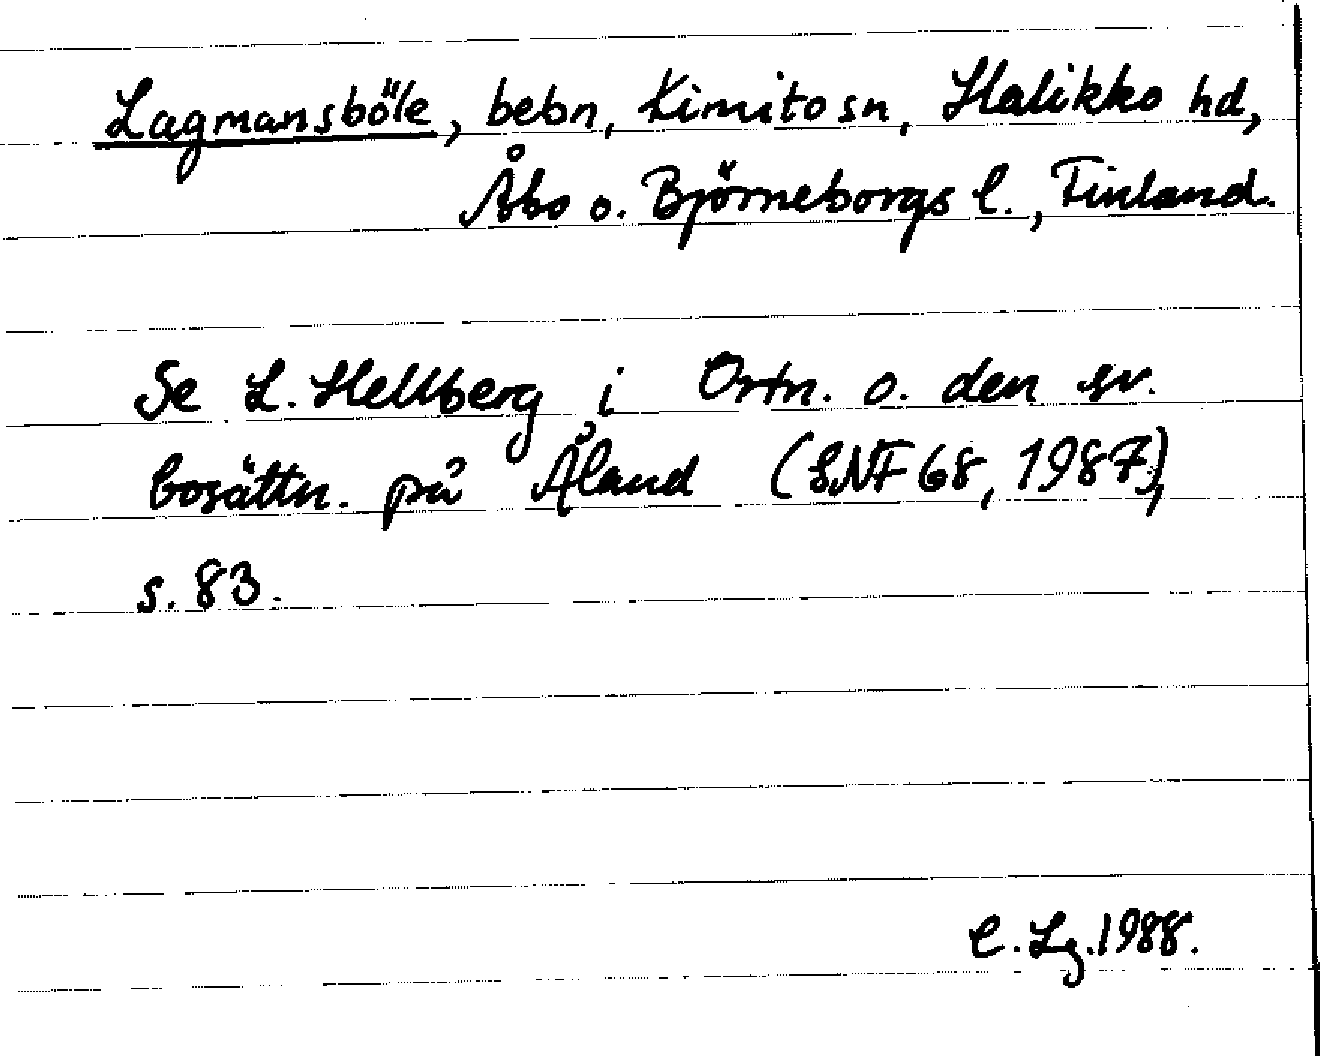 Lagmansböle, bebn, Kimito sn, Halikko hd,
Åbo o. Björneborgs l., Finland.
Se L. Hellberg i Ortn. o. den sv.
bosättn. på Åland (SNF 68, 1987),
s. 83.
C. Lg. 1988.